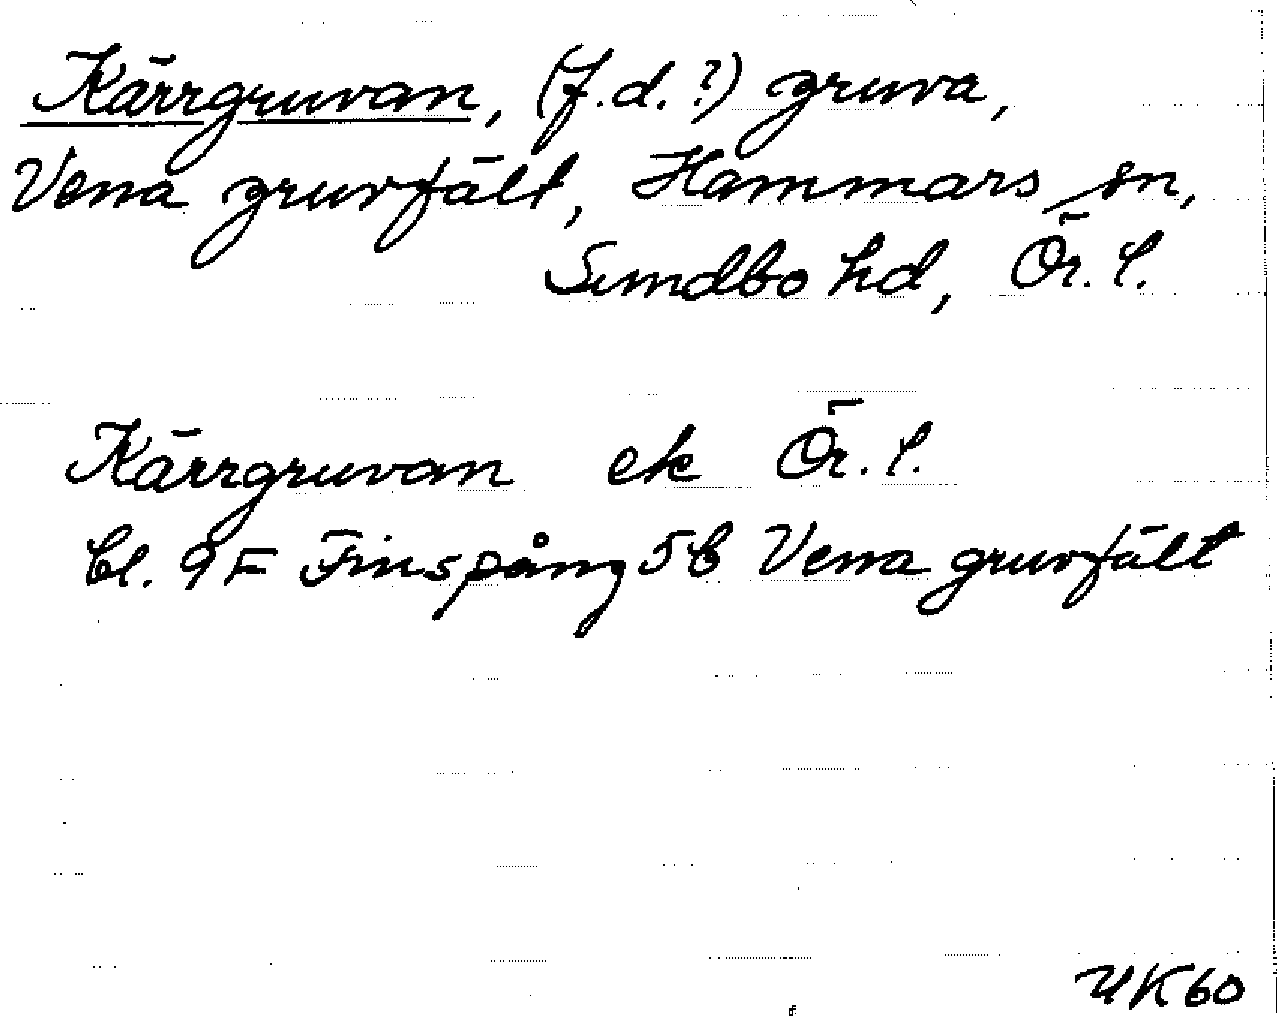 Kärrgruvan, (f.d.?) gruva,
Vena gruvfält, Hammars sn,
Sundbo hd, Ör. l.
Kärrgruvan ek Ör. l.
bl. 9F Finspång 5b Vena gruvfält
UK60